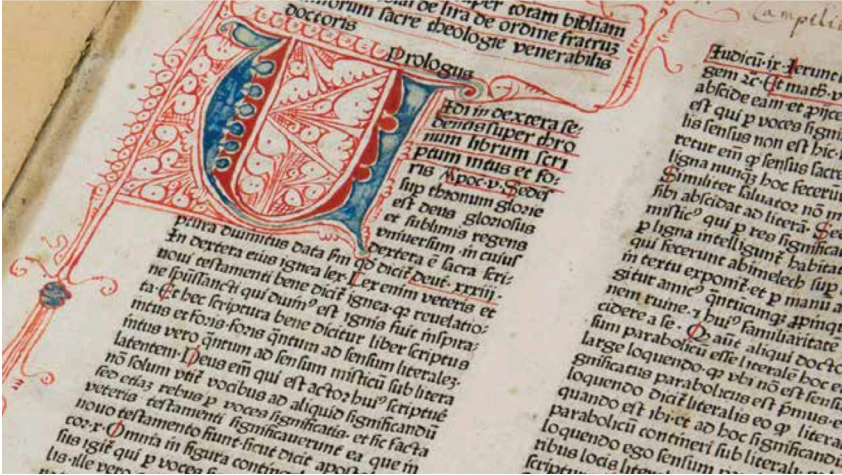 super totam bibliam
de lira de ordine fratruz
sacre theologie venerabilis
doctoris
Prologus
Vidi in dextera se/
dentis super thro
num librum scri
ptum intus et fo/
ris Apoc. v. Sedes
sup thronum glorie
est deus gloriosus
et sublimis regens
vniversum. in cuius
dextera ē sacra scri/
ptura divinitus data fm qd dicit deut. xxxiij.
In dextera eius ignea lex. Lex enim veteris et
noui testamenti bene dicit ignea. qz reuelatio/
ne spūssancti qui diuin⁹ est ignis fuit inspira/
ta. Et hec scriptura bene dicitur liber scriptus
intus et foris. foris q̄ntum ad sensum literalez.
intus vero q̄ntum ad sensum misticū sub litera
latentem. Deus em̄ qui est actor hui⁹ scripturē
nō solum vtit vocibus ad aliquid significandū
sed etiaz rebus p voces significatis. et sic facta
veteris testamenti significauerunt ea que in
nouo testamento fiunt. sicut dicit apostol
cor. x. Omnia in figura contin
sits igit qui p voces
lis. ille vero
Campili
Judicū. ix. Ierunt
gem ⁊c. Et math. v
abscide eam et proijce
est qui p voces signi
lis sensus non est hic.
retur em̄ qp sensus sacre
ligna nunqz hoc fecerūt
Similiter saluator nō
sibi abscidat ad literā. Sed
mistic⁹ qui p res significa
p ligna intelligunt habitat
qui fecerunt abimelech sup
in textu exponit et p manū a
gitur ann⁹ q̄ntucunqz ppinqu
nem ruine. ⁊ hui⁹ familiaritate
cidere a se. Qz aūt aliqui docto
sum parabolicū esse literalē hoc e
large loquendo. qz vbi nō est sensu
gnificatus parabolicus est pmus. e
loquendo dicit literalis eo qp literali
quando est ibi. et ad hoc significandi
parabolicū contineri sub literal
loquendo ego sensum p
tibus locis literal
scriptur